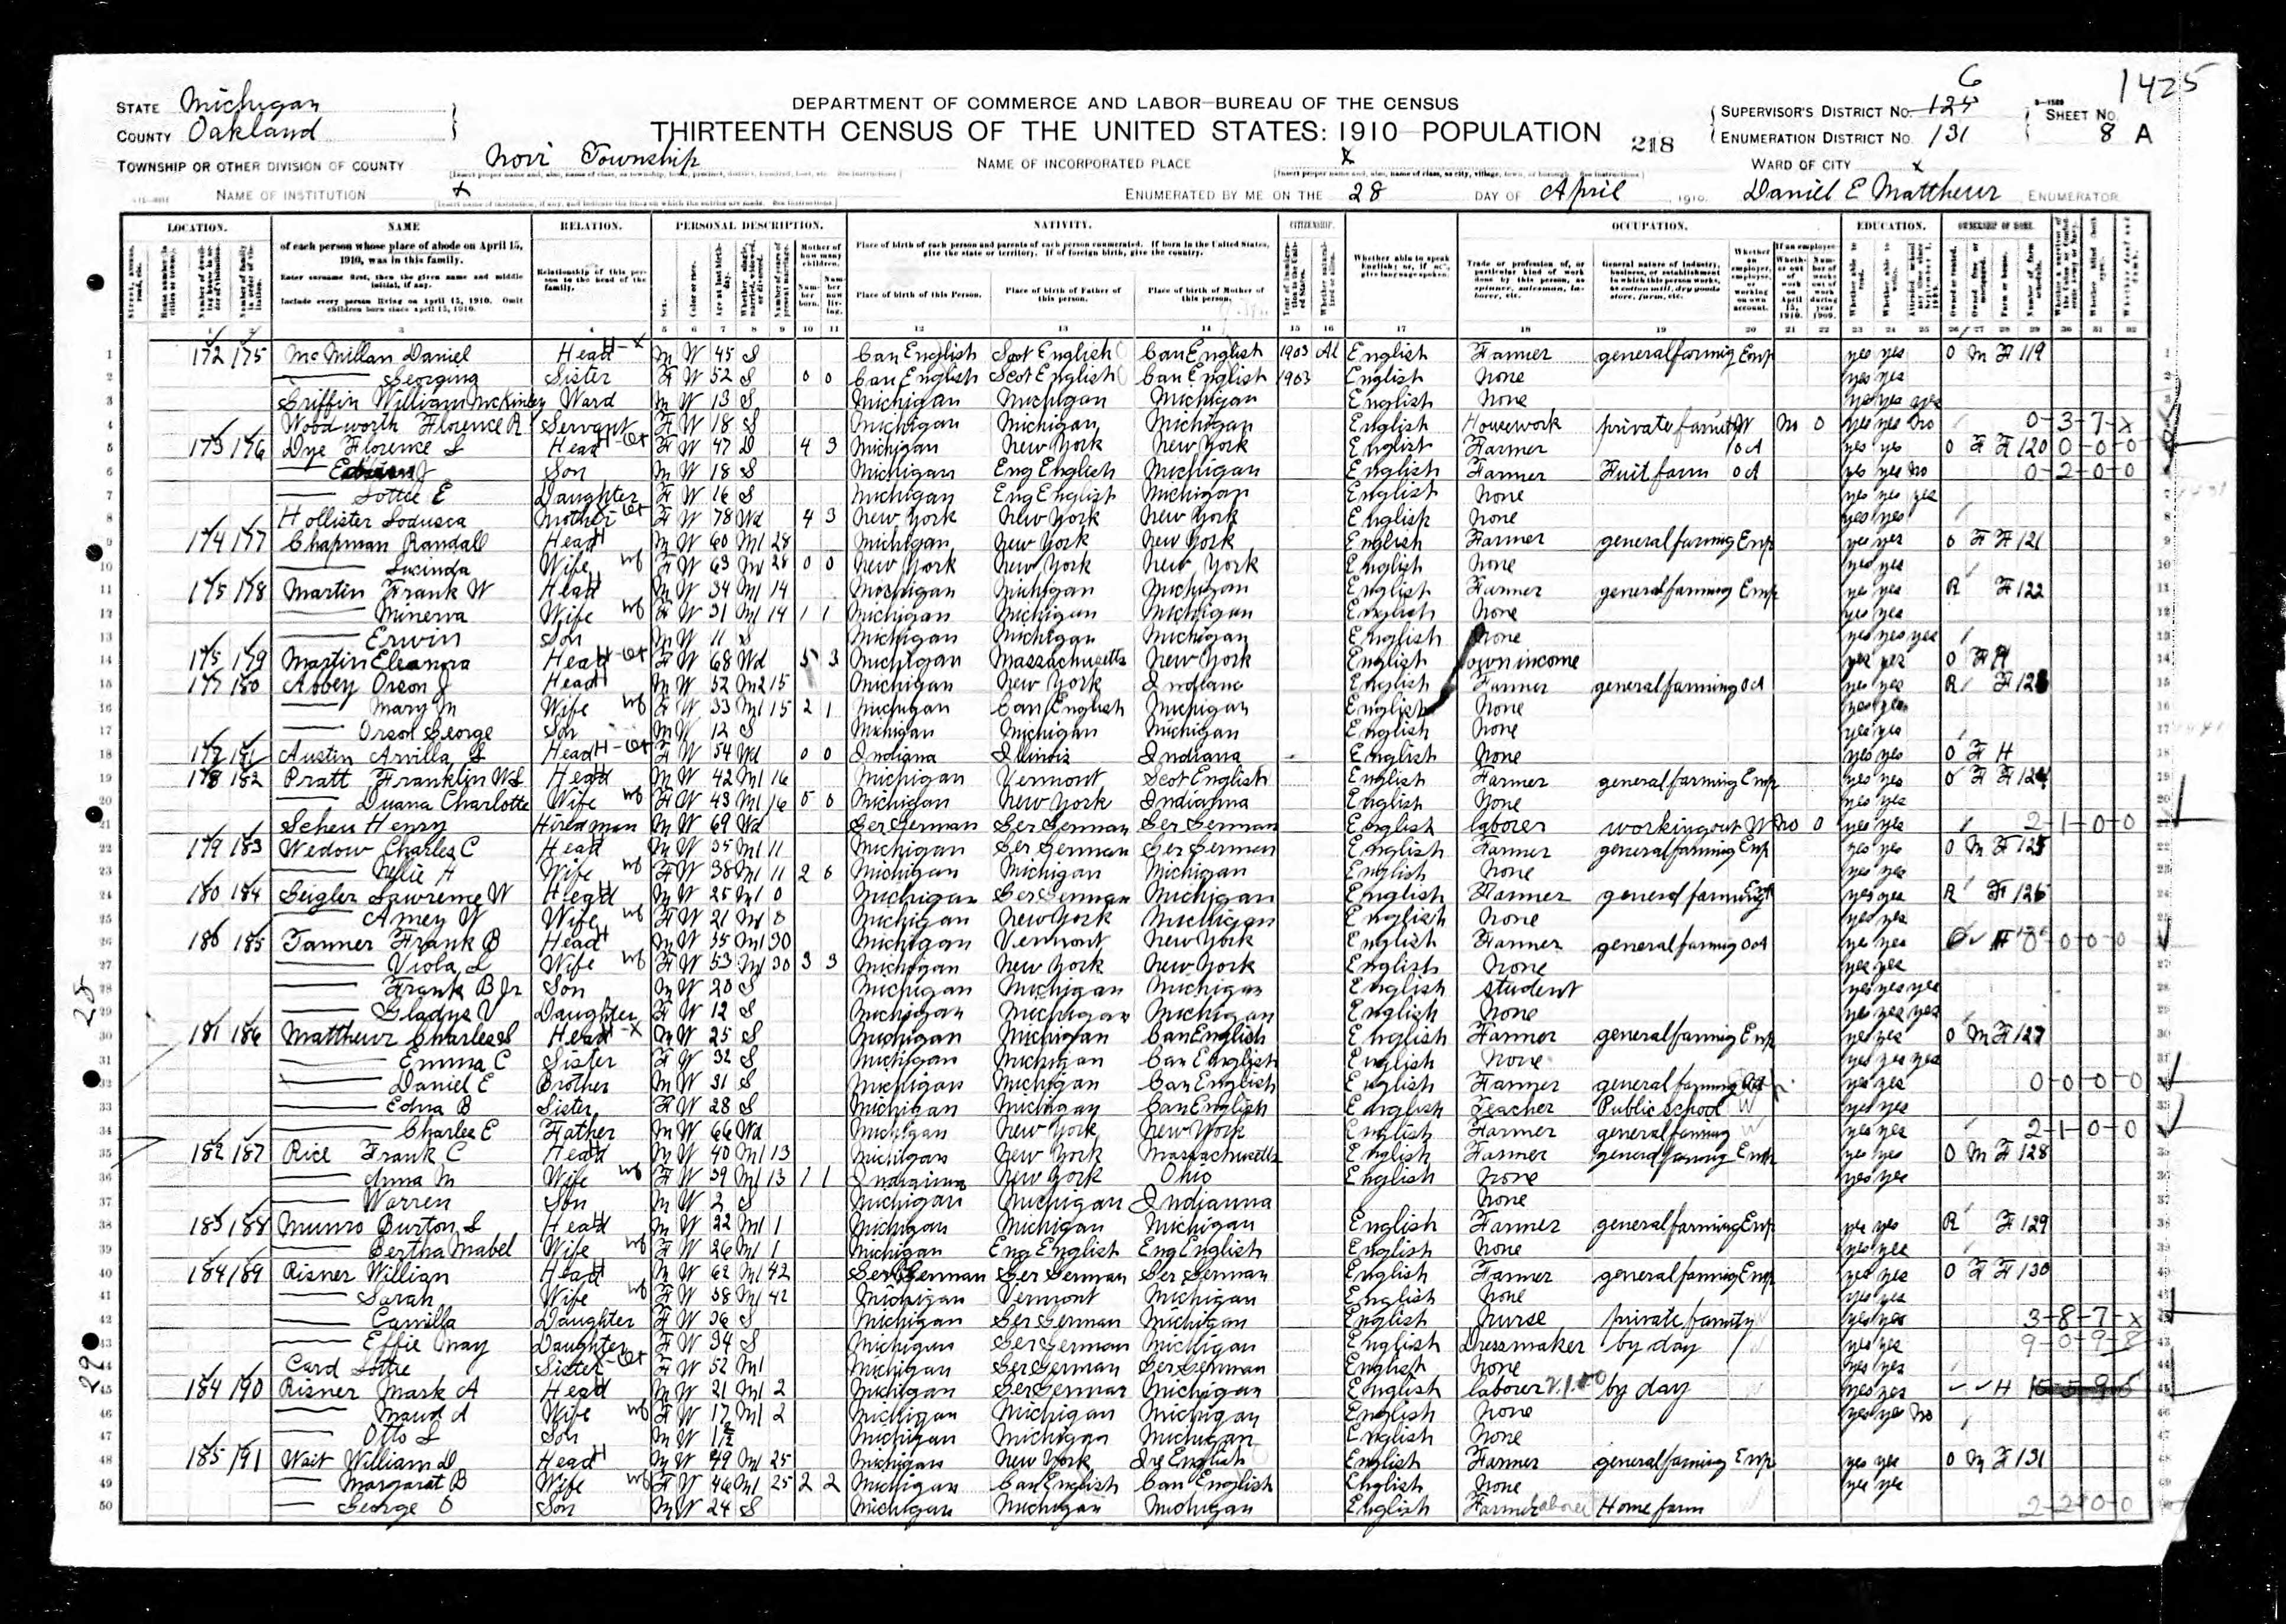 1425
STATE Michigan
COUNTY Oakland
DEPARTMENT OF COMMERCE AND LABOR—BUREAU OF THE CENSUS
THIRTEENTH CENSUS OF THE UNITED STATES: 1910—POPULATION
218
6
SUPERVISOR'S DISTRICT NO. 124
ENUMERATION DISTRICT NO. 131
SHEET NO. 8 A
TOWNSHIP OR OTHER DIVISION OF COUNTY Novi Township
NAME OF INCORPORATED PLACE x
WARD OF CITY x
NAME OF INSTITUTION x
ENUMERATED BY ME ON THE 28 DAY OF April, 1910. Daniel E Matthews ENUMERATOR
LOCATION. NAME RELATION. PERSONAL DESCRIPTION. NATIVITY. CITIZENSHIP. OCCUPATION. EDUCATION. OWNERSHIP OF HOME.
of each person whose place of abode on April 15, 1910, was in this family.
Enter surname first, then the given name and middle initial, if any.
Include every person living on April 15, 1910. Omit children born since April 15, 1910.
Relationship of this person to the head of the family.
Place of birth of each person and parents of each person enumerated. If born in the United States, give the state or territory. If of foreign birth, give the country.
Place of birth of this Person. Place of birth of Father of this person. Place of birth of Mother of this person.
1 172 175 McMillan Daniel Head M W 45 S Can English Scot English Can English 1903 Al English Farmer general farming Emp yes yes O M F 119
2 Georgina Sister F W 52 S 0 0 Can English Scot English Can English 1903 English None yes yes
3 Griffin William McKinley Ward M W 13 S Michigan Michigan Michigan English None yes yes yes
4 Woodworth Florence R Servant F W 18 S Michigan Michigan Michigan English Housework private family W No 0 yes yes No 0-3-7-x
5 173 176 Dye Florence L Head F W 47 D 4 3 Michigan New York New York English Farmer OA yes yes O F F 120 0-0-0
6 Son M W 18 S Michigan Eng English Michigan English Farmer Fruit farm OA yes yes No 0-2-0-0
7 Lottie E Daughter F W 16 S Michigan Eng English Michigan English None yes yes yes
8 Hollister Lodusca Mother F W 78 Wd 4 3 New York New York New York English None yes yes
9 174 177 Chapman Randall Head M W 60 M1 28 Michigan New York New York English Farmer general farming Emp yes yes O F F 121
10 Lucinda Wife F W 63 M1 28 0 0 New York New York New York English None yes yes
11 175 178 Martin Frank W Head M W 34 M1 14 Michigan Michigan Michigan English Farmer general farming Emp yes yes R F 122
12 Minerva Wife F W 31 M1 14 1 1 Michigan Michigan Michigan English None yes yes
13 Erwin Son M W 11 S Michigan Michigan Michigan English None yes yes yes
14 175 179 Martin Eleanora Head F W 68 Wd 5 3 Michigan Massachusetts New York English own income yes yes O F H
15 177 180 Abbey Orson J Head M W 52 M2 15 Michigan New York Indiana English Farmer general farming OA yes yes R F 123
16 Mary M Wife F W 33 M1 15 2 1 Michigan Can English Michigan English None yes yes
17 Orson George Son M W 12 S Michigan Michigan Michigan English None yes yes
18 177 181 Austin Arvilla L Head F W 54 Wd 0 0 Indiana Illinois Indiana English None yes yes O F H
19 178 182 Pratt Franklin WS Head M W 42 M1 16 Michigan Vermont Scot English English Farmer general farming Emp yes yes O F F 124
20 Duana Charlotte Wife F W 43 M1 16 0 0 Michigan New York Indianna English None yes yes
21 Scheu Henry Hired man M W 69 Wd Ger German Ger German Ger German English laborer working out W No 0 yes yes 2-1-0-0
22 179 183 Wedow Charles C Head M W 35 M1 11 Michigan Ger German Ger German English Farmer general farming Emp yes yes O M F 125
23 Nellie H Wife F W 38 M1 11 2 0 Michigan Michigan Michigan English None yes yes
24 180 184 Seigler Lawrence W Head M W 25 M1 0 Michigan Ger German Michigan English Farmer general farming Emp yes yes R F 126
25 Amey W Wife F W 21 M1 0 Michigan New York Michigan English None yes yes
26 185 Tanner Frank B Head M W 55 M1 30 Michigan Vermont New York English Farmer general farming OA yes yes 0-0-0-0
27 Viola L Wife F W 53 M1 30 3 3 Michigan New York New York English None yes yes
28 Frank B Jr Son M W 20 S Michigan Michigan Michigan English student yes yes yes
29 Gladys V Daughter F W 12 S Michigan Michigan Michigan English None yes yes yes
30 181 186 Matthews Charles S Head M W 25 S Michigan Michigan Can English English Farmer general farming Emp yes yes O M F 127
31 Emma C Sister F W 32 S Michigan Michigan Can English English None yes yes yes
32 Daniel E Brother M W 31 S Michigan Michigan Can English English Farmer general farming OA yes yes 0-0-0-0
33 Edna B Sister F W 28 S Michigan Michigan Can English English Teacher Public school W yes yes
34 Charles E Father M W 66 Wd Michigan New York New York English Farmer general farming W yes yes 2-1-0-0
35 182 187 Rice Frank C Head M W 40 M1 13 Michigan New York Massachusetts English Farmer general farming Emp yes yes O M F 128
36 Anna M Wife F W 39 M1 13 1 1 Indianna New York Ohio English None yes yes
37 Warren Son M W 2 S Michigan Michigan Indianna None
38 183 188 Munro Burton L Head M W 22 M1 1 Michigan Michigan Michigan English Farmer general farming Emp yes yes R F 129
39 Bertha Mabel Wife F W 26 M1 1 Michigan Eng English Eng English English None yes yes
40 184 189 Risner William Head M W 62 M1 42 Ger German Ger German Ger German English Farmer general farming Emp yes yes O F F 130
41 Sarah Wife F W 58 M1 42 Michigan Vermont Michigan English None yes yes
42 Camilla Daughter F W 36 S Michigan Ger German Michigan English Nurse private family W yes yes 3-8-7-x
43 Effie May Daughter F W 34 S Michigan Ger German Michigan English Dressmaker by day W yes yes 9-0-9-8
44 Card Lottie Sister F W 52 M1 Michigan Ger German Ger German English None yes yes
45 184 190 Risner Mark A Head M W 21 M1 2 Michigan Ger German Michigan English laborer by day yes yes H
46 Maud A Wife F W 17 M1 2 Michigan Michigan Michigan English None yes yes No
47 Otto L Son M W Michigan Michigan Michigan English None
48 185 191 Wait William D Head M W 49 M1 25 Michigan New York Ire English English Farmer general farming Emp yes yes O M F 131
49 Margaret B Wife F W 46 M1 25 2 2 Michigan Can English Can English English None yes yes
50 George O Son M W 24 S Michigan Michigan Michigan English Farmer laborer Home farm 2-2-0-0